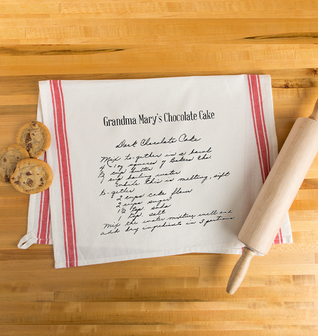 Grandma Mary's Chocolate Cake
Dark Chocolate Cake
Mix to-gether in a bowl
4 - 1oz squares of Bakers cho.
butter
boiling water
While this is melting, sift
to-gether
2 cups cake flour
2 cups sugar
1½ tsp. soda
1 tsp. salt
Mix the water mixture well and
add dry ingredients in 3 portions